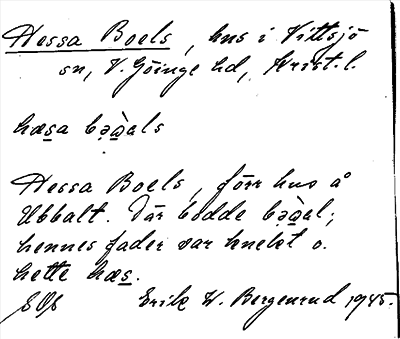 Hessa Boels, hus i Vittsjö
sn, V. Göinge hd, Krist. l.
hæsa bə̣ạ̀els
Hessa Boels, förr hus å
Ubbalt. Där bodde bə̣ạ̀el;
hennes fader var knekt o.
hette hæs.
Erik W. Bergenrud 1945.